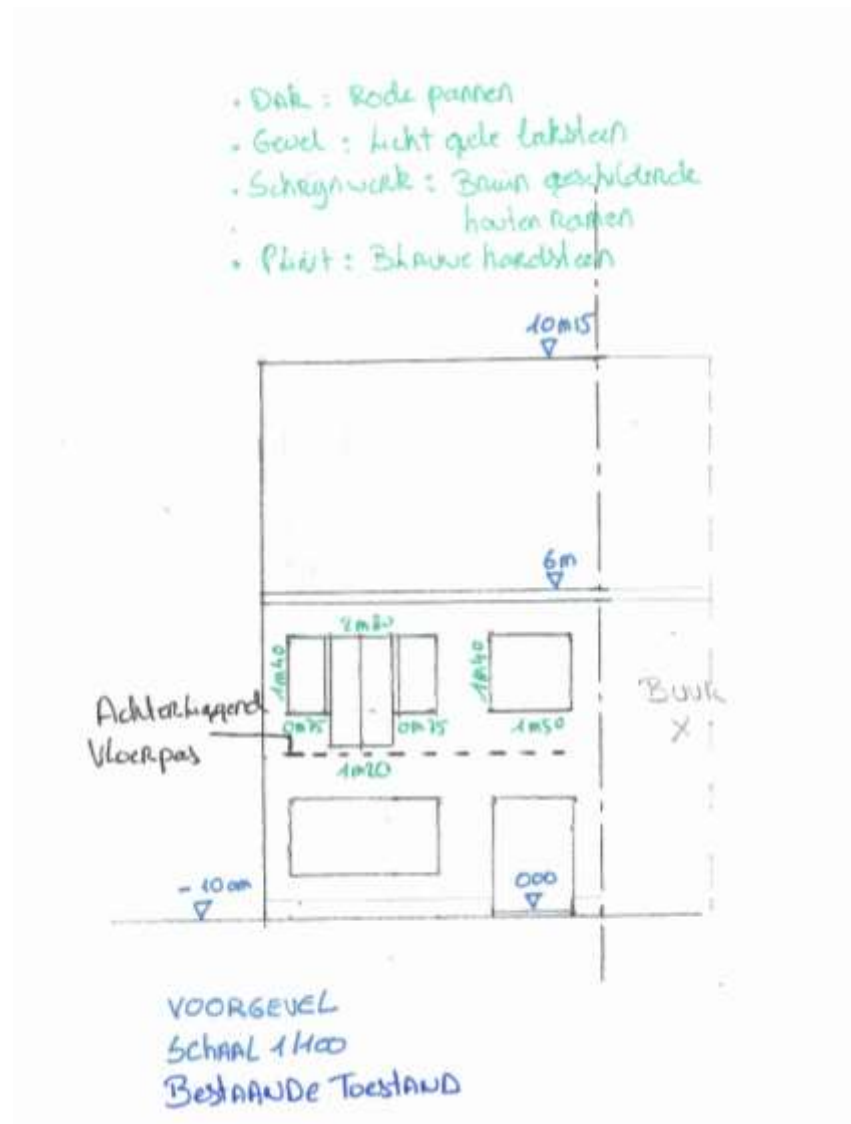 • Dak : Rode pannen
• Gevel : Licht gele baksteen
• Schrijnwerk : Bruin geschilderde
houten Ramen
• Plint : Blauwe hardsteen
10m15
6m
2m80
1m40
1m40
Buur
X
Achterliggend
Vloerpas
0m75
0m75
1m50
1m20
- 10cm
000
VOORGEVEL
SCHAAL 1/100
Bestaande Toestand